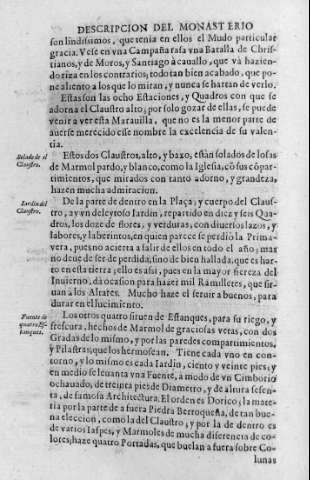 DESCRIPCION DEL MONASTERIO
son lindissimos, que tenia en ellos el Mudo particular
gracia. Vese en vna Campaña rasa vna Batalla de Chris-
tianos, y de Moros, y Santiago à cauallo, que và hazien-
do riza en los contrarios, todo tan bien acabado, que po-
ne aliento a los que lo miran, y nunca se hartan de verlo.
Estas son las ocho Estaciones, y Quadros con que se
adorna el Claustro alto; por solo gozar de ellas, se puede
venir a ver esta Marauilla, que no es la menor parte de
auerse merecido esse nombre la excelencia de su valen-
tia.
Solado de el
Claustro.
Estos dos Claustros, alto, y baxo, están solados de losas
de Marmol pardo, y blanco, como la Iglesia, cõ sus cõpar-
timientos, que mirados con tanto adorno, y grandeza,
hazen mucha admiracion.
Iardin del
Claustro.
De la parte de dentro en la Plaça, y cuerpo del Claus-
tro, ay vn deleytoso Iardin, repartido en diez y seis Qua-
dros, los doze de flores, y verduras, con diuersos lazos, y
labores, y laberintos, en quien parece se perdiò la Prima-
vera, pues no acierta a salir de ellos en todo el año; mas
no deue de ser de perdida, sino de bien hallada, que es har-
to en esta tierra; ello es assi, pues en la mayor fiereza del
Inuierno, dà ocasion para hazer mil Ramilletes, que sir-
uan à los Altares. Mucho haze el seruir a buenos, para
durar en el lucimiento.
Fuente de
quatro Es-
tanques.
Los otros quatro siruen de Estanques, para su riego, y
frescura, hechos de Marmol de graciosas vetas, con dos
Gradas de lo mismo, y por las paredes compartimientos,
y Pilastras, que los hermosean. Tiene cada vno en con-
torno, y lo mismo es cada Iardin, ciento y veinte pies; y
en medio se leuanta vna Fuente, à modo de vn Cimborio
ochauado, de treinta pies de Diametro, y de altura sesen-
ta, de famosa Architectura. El orden es Dorico; la mate-
ria por la parte de a fuera Piedra Berroqueña, de tan bue-
na eleccion, como la del Claustro, y por la de dentro es
de varios Iaspes, y Marmoles de mucha diferencia de co-
lores; haze quatro Portadas, que buelan a fuera sobre Co-
lunas